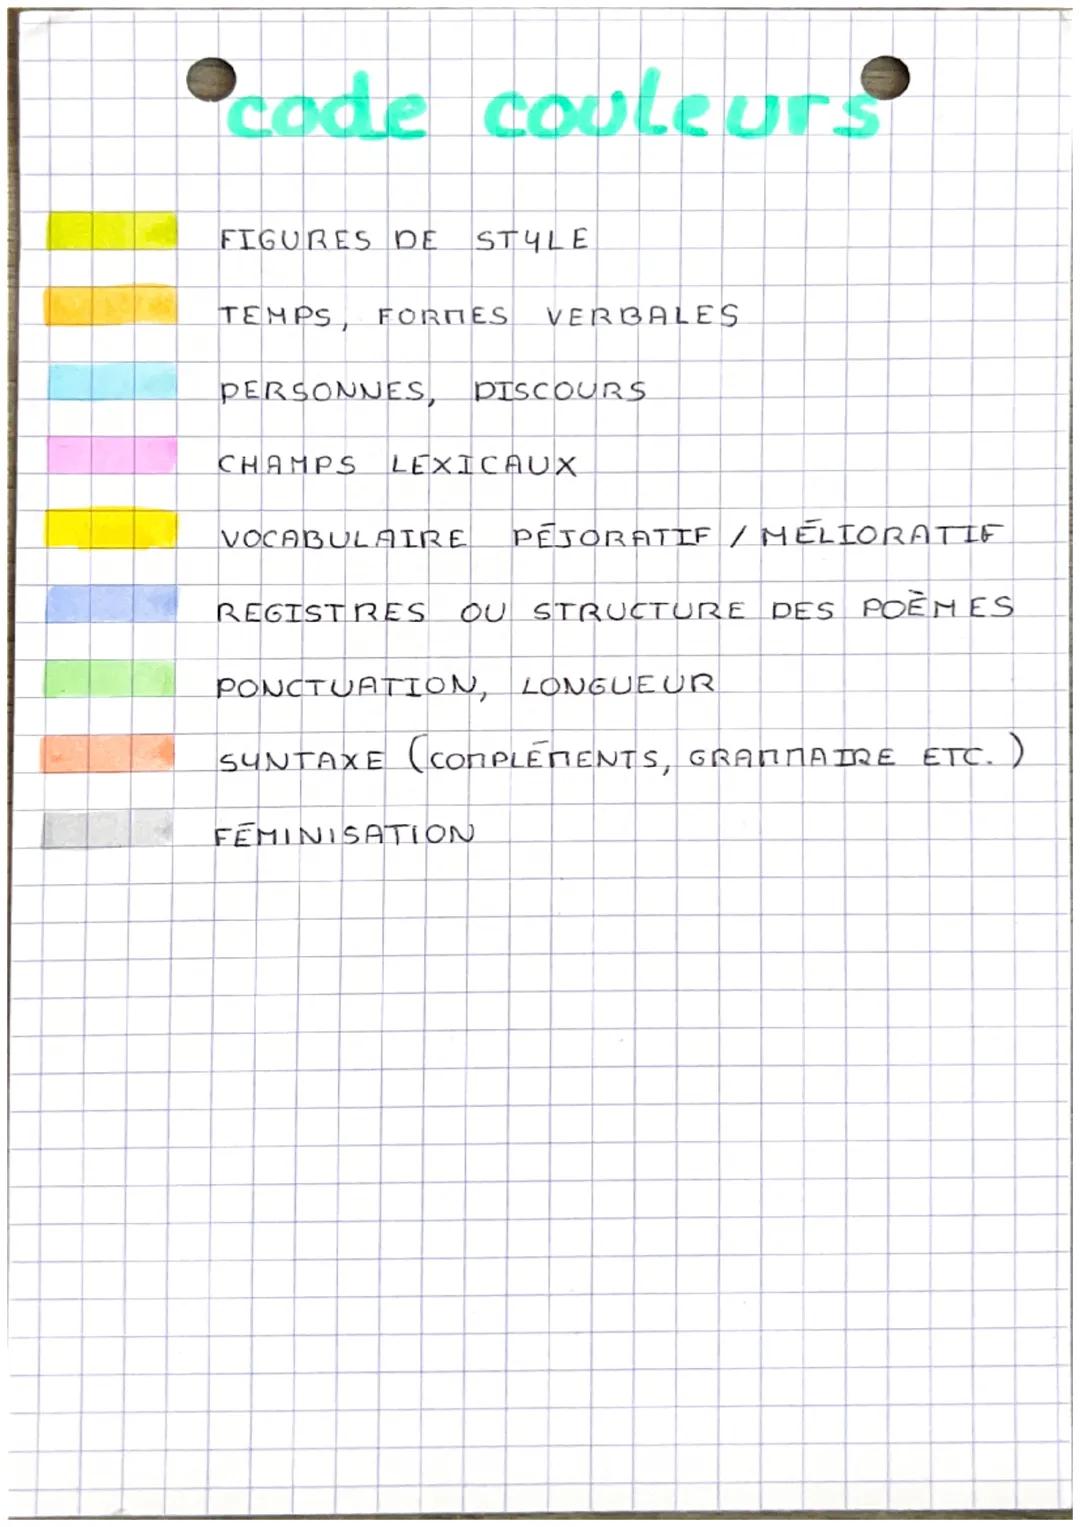 code couleurs
FIGURES DE STYLE
TEMPS, FORMES VERBALES
PERSONNES, DISCOURS
CHAMPS LEXICAUX
VOCABULAIRE PÉJORATIF / MÉLIORATIF
REGISTRES OU STRUCTURE DES POÈMES
PONCTUATION, LONGUEUR
SYNTAXE (COMPLÉMENTS, GRAMMAIRE ETC.)
FÉMINISATION